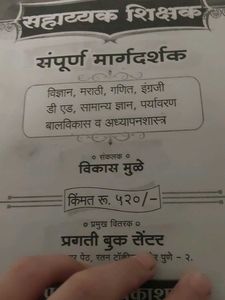 सहाय्यक शिक्षक
संपूर्ण मार्गदर्शक
विज्ञान, मराठी, गणित, इंग्रजी
डी एड, सामान्य ज्ञान, पर्यावरण
बालविकास व अध्यापनशास्त्र
संकलक
विकास मुळे
किंमत रू. ५२०/-
प्रमुख वितरक
प्रगती बुक सेंटर
पेठ, रतन पुणे - २.